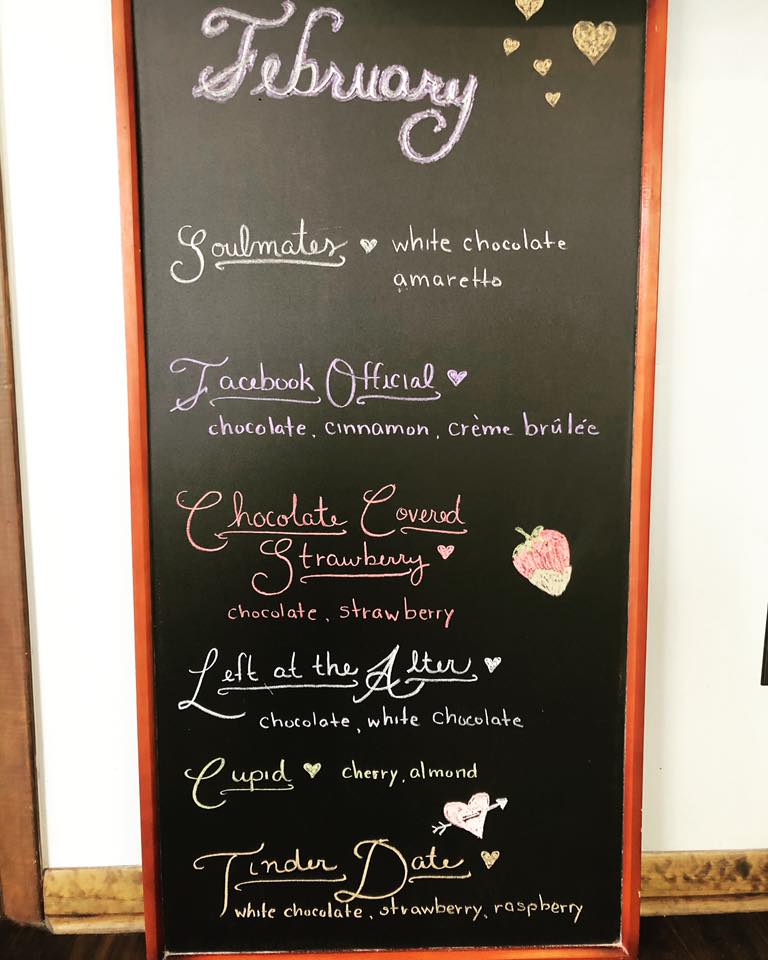 February
Soulmates white chocolate
amaretto
Facebook Official
chocolate, cinnamon, crème brûlée
Chocolate Covered
Strawberry
chocolate, strawberry
Left at the Alter
chocolate, white chocolate
Cupid cherry, almond
Tinder Date
white chocolate, strawberry, raspberry